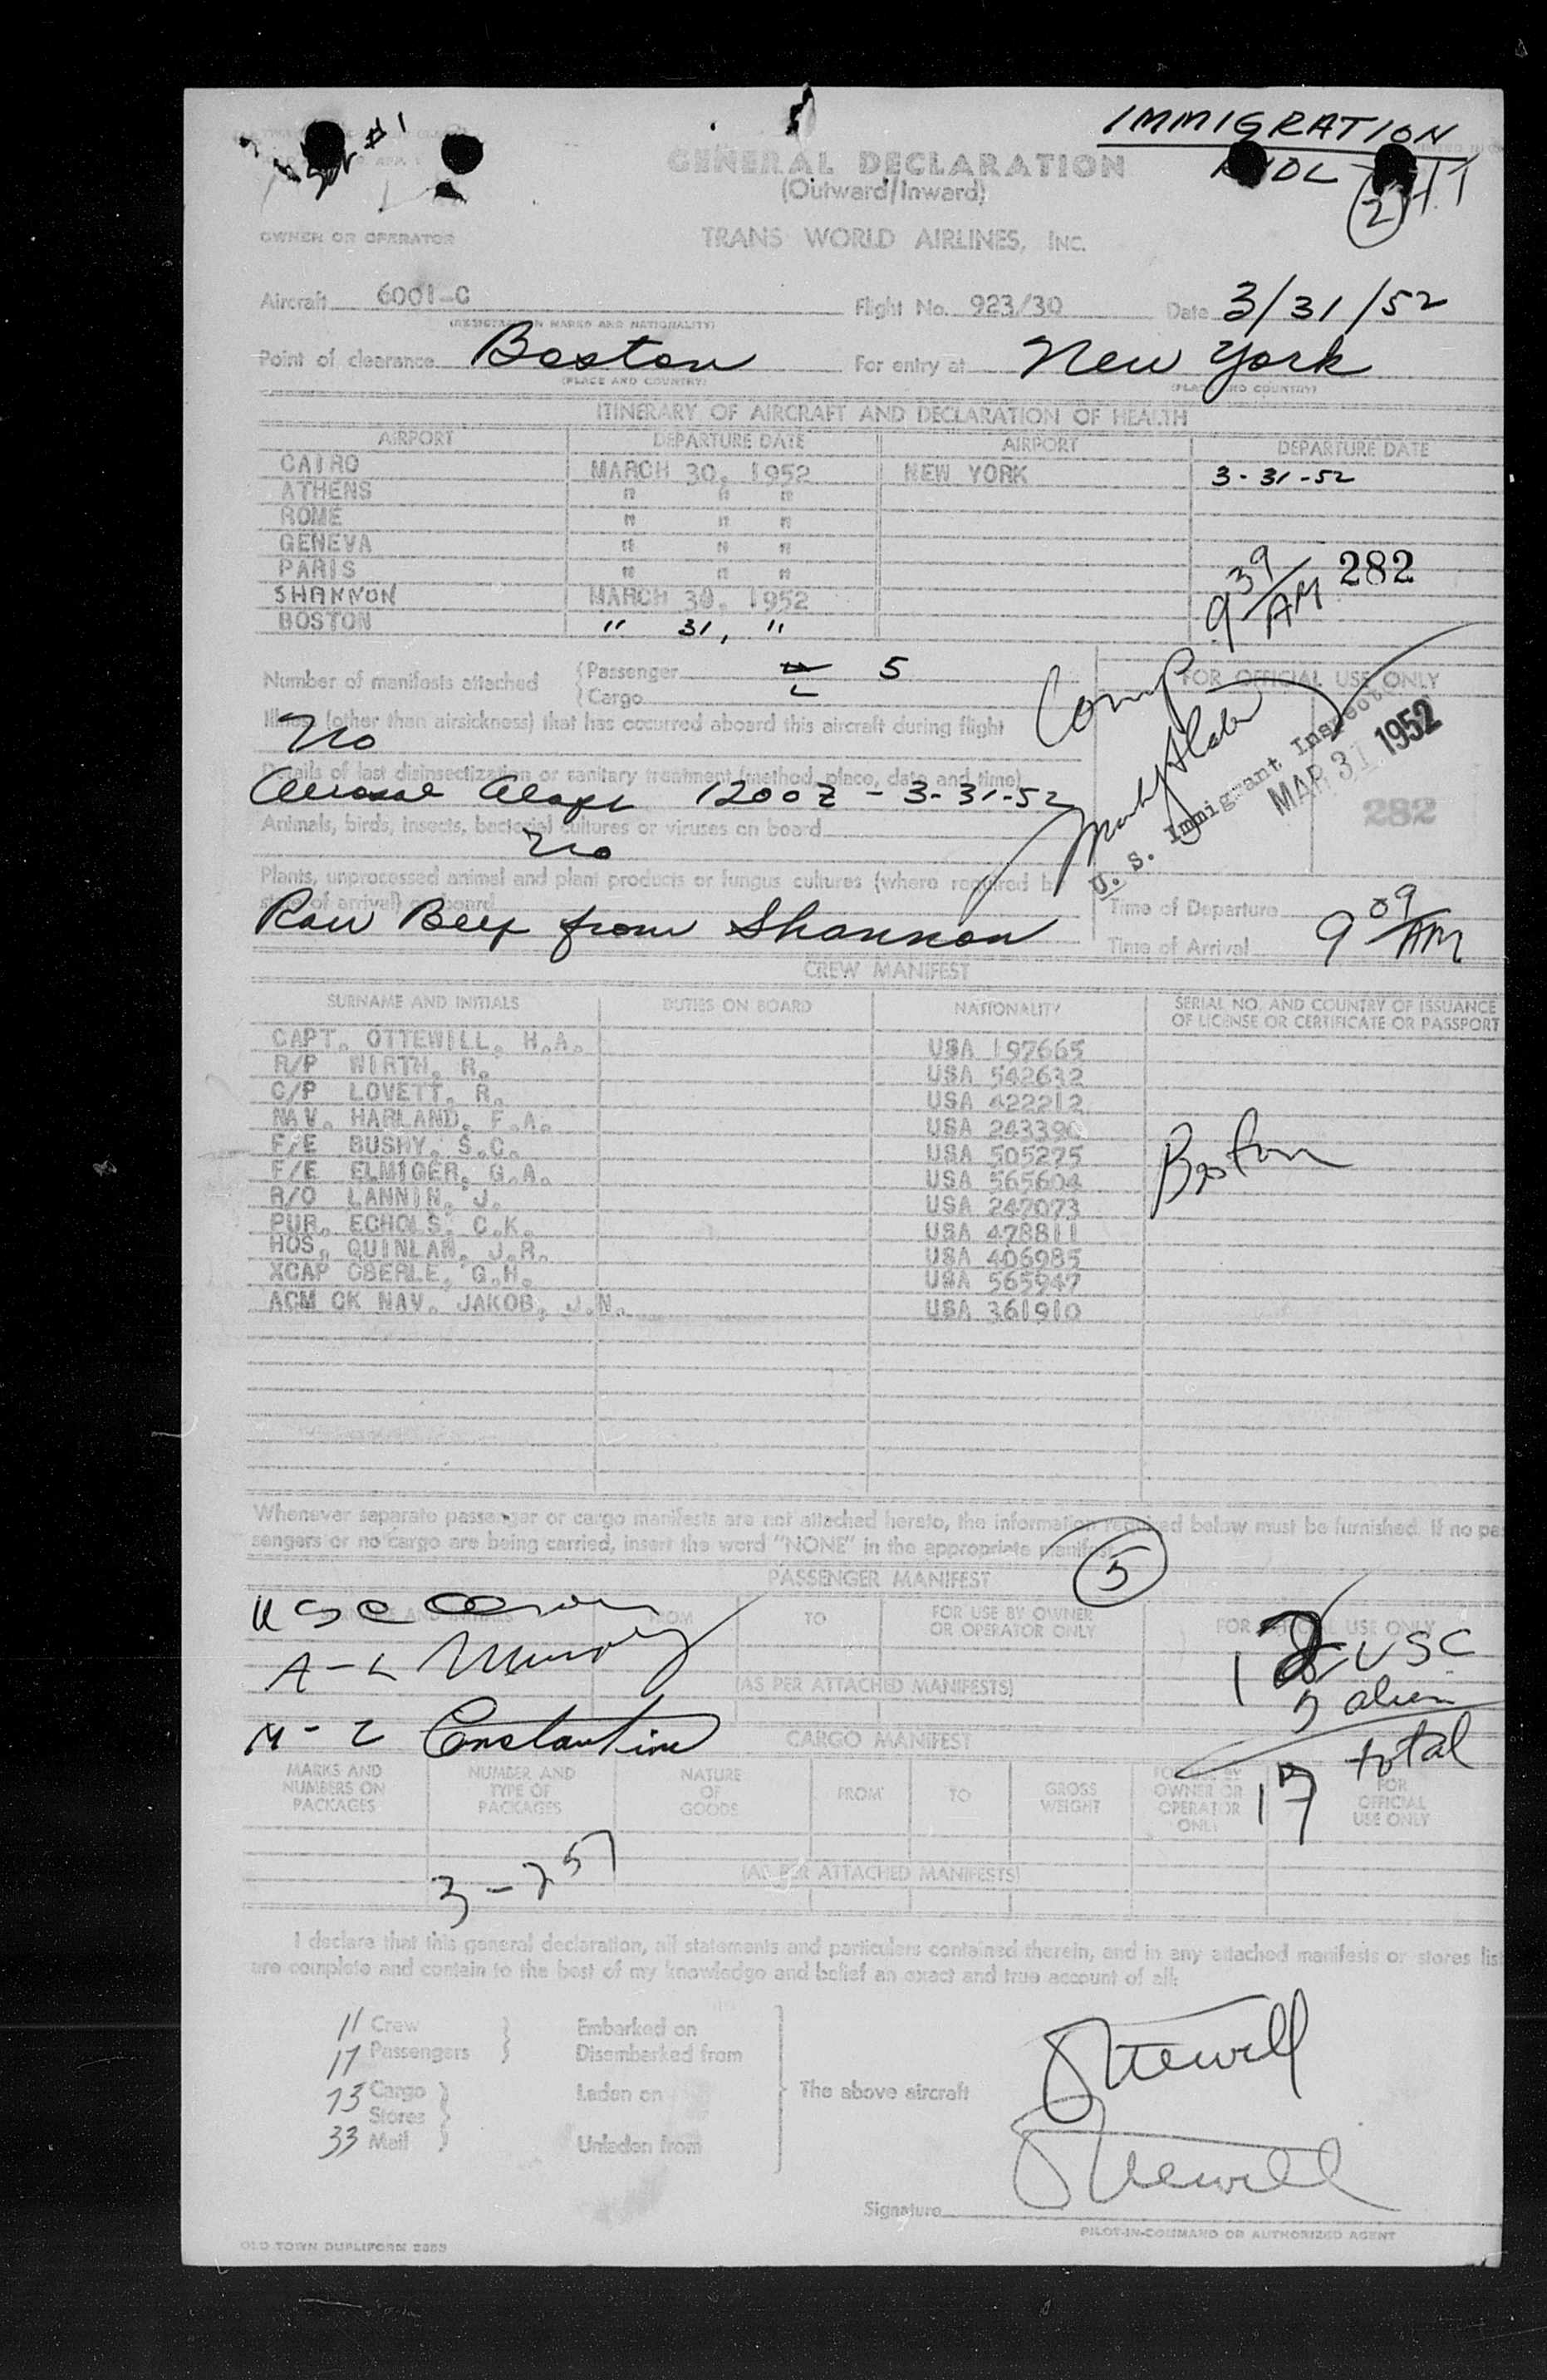 #1
IMMIGRATION
GENERAL DECLARATION
(Outward/Inward)
2
OWNER OR OPERATOR
TRANS WORLD AIRLINES, INC.
Aircraft 6001-C Flight No. 923/30 Date 3/31/52
(REGISTRATION MARKS AND NATIONALITY)
Point of clearance Boston For entry at New York
(PLACE AND COUNTRY) (PLACE AND COUNTRY)
ITINERARY OF AIRCRAFT AND DECLARATION OF HEALTH
AIRPORT DEPARTURE DATE AIRPORT DEPARTURE DATE
CAIRO MARCH 30, 1952 NEW YORK 3-31-52
ATHENS " " "
ROME " " "
GENEVA " " "
PARIS " " "
SHANNON MARCH 30, 1952
BOSTON " 31, "
9 39 AM 282
Number of manifests attached
(Passenger 5
(Cargo
Comp
FOR OFFICIAL USE ONLY
Illness (other than airsickness) that has occurred aboard this aircraft during flight
No
U. S. Immigrant Inspector
MAR 31 1952
282
Details of last disinsectization or sanitary treatment (method, place, date and time)
1200Z - 3-31-52
Animals, birds, insects, bacterial cultures or viruses on board
No
Plants, unprocessed animal and plant products or fungus cultures (where required by
state of arrival) on board
Raw Beef from Shannon
Time of Departure
Time of Arrival 9 09 AM
CREW MANIFEST
SURNAME AND INITIALS DUTIES ON BOARD NATIONALITY SERIAL NO. AND COUNTRY OF ISSUANCE
OF LICENSE OR CERTIFICATE OR PASSPORT
CAPT. OTTEWILL, H.A. USA 197665
R/P WIRTH, R. USA 542632
C/P LOVETT, R. USA 422212
NAV. HARLAND, F.A. USA 243390
F/E BUSHY, S.C. USA 505275
F/E ELMIGER, G.A. USA 565604
R/O LANNIN, J. USA 247073
PUR. ECHOLS, C.K. USA 478811
HOS. QUINLAN, J.R. USA 406985
XCAP OBERLE, G.H. USA 565947
ACM CK NAV. JAKOB, J.N. USA 361910
Boston
Whenever separate passenger or cargo manifests are not attached hereto, the information required below must be furnished. If no pas
sengers or no cargo are being carried, insert the word "NONE" in the appropriate manifest.
5
PASSENGER MANIFEST
SURNAME AND INITIALS FROM TO FOR USE BY OWNER
OR OPERATOR ONLY
FOR OFFICIAL USE ONLY
USC
A-L
(AS PER ATTACHED MANIFESTS)
12 USC
5 alien
total
17
M-Z Constantine
CARGO MANIFEST
MARKS AND
NUMBERS ON
PACKAGES
NUMBER AND
TYPE OF
PACKAGES
NATURE
OF
GOODS
FROM
TO
GROSS
WEIGHT
FOR USE BY
OWNER OR
OPERATOR
ONLY
FOR
OFFICIAL
USE ONLY
(AS PER ATTACHED MANIFESTS)
3-257
I declare that this general declaration, all statements and particulars contained therein, and in any attached manifests or stores list
are complete and contain to the best of my knowledge and belief an exact and true account of all:
11 Crew
17 Passengers
Embarked on
Disembarked from
73 Cargo
Stores
33 Mail
Laden on
Unladen from
The above aircraft
Ottewill
Ottewill
Signature
PILOT-IN-COMMAND OR AUTHORIZED AGENT
OLD TOWN DUPLIFORM 2353